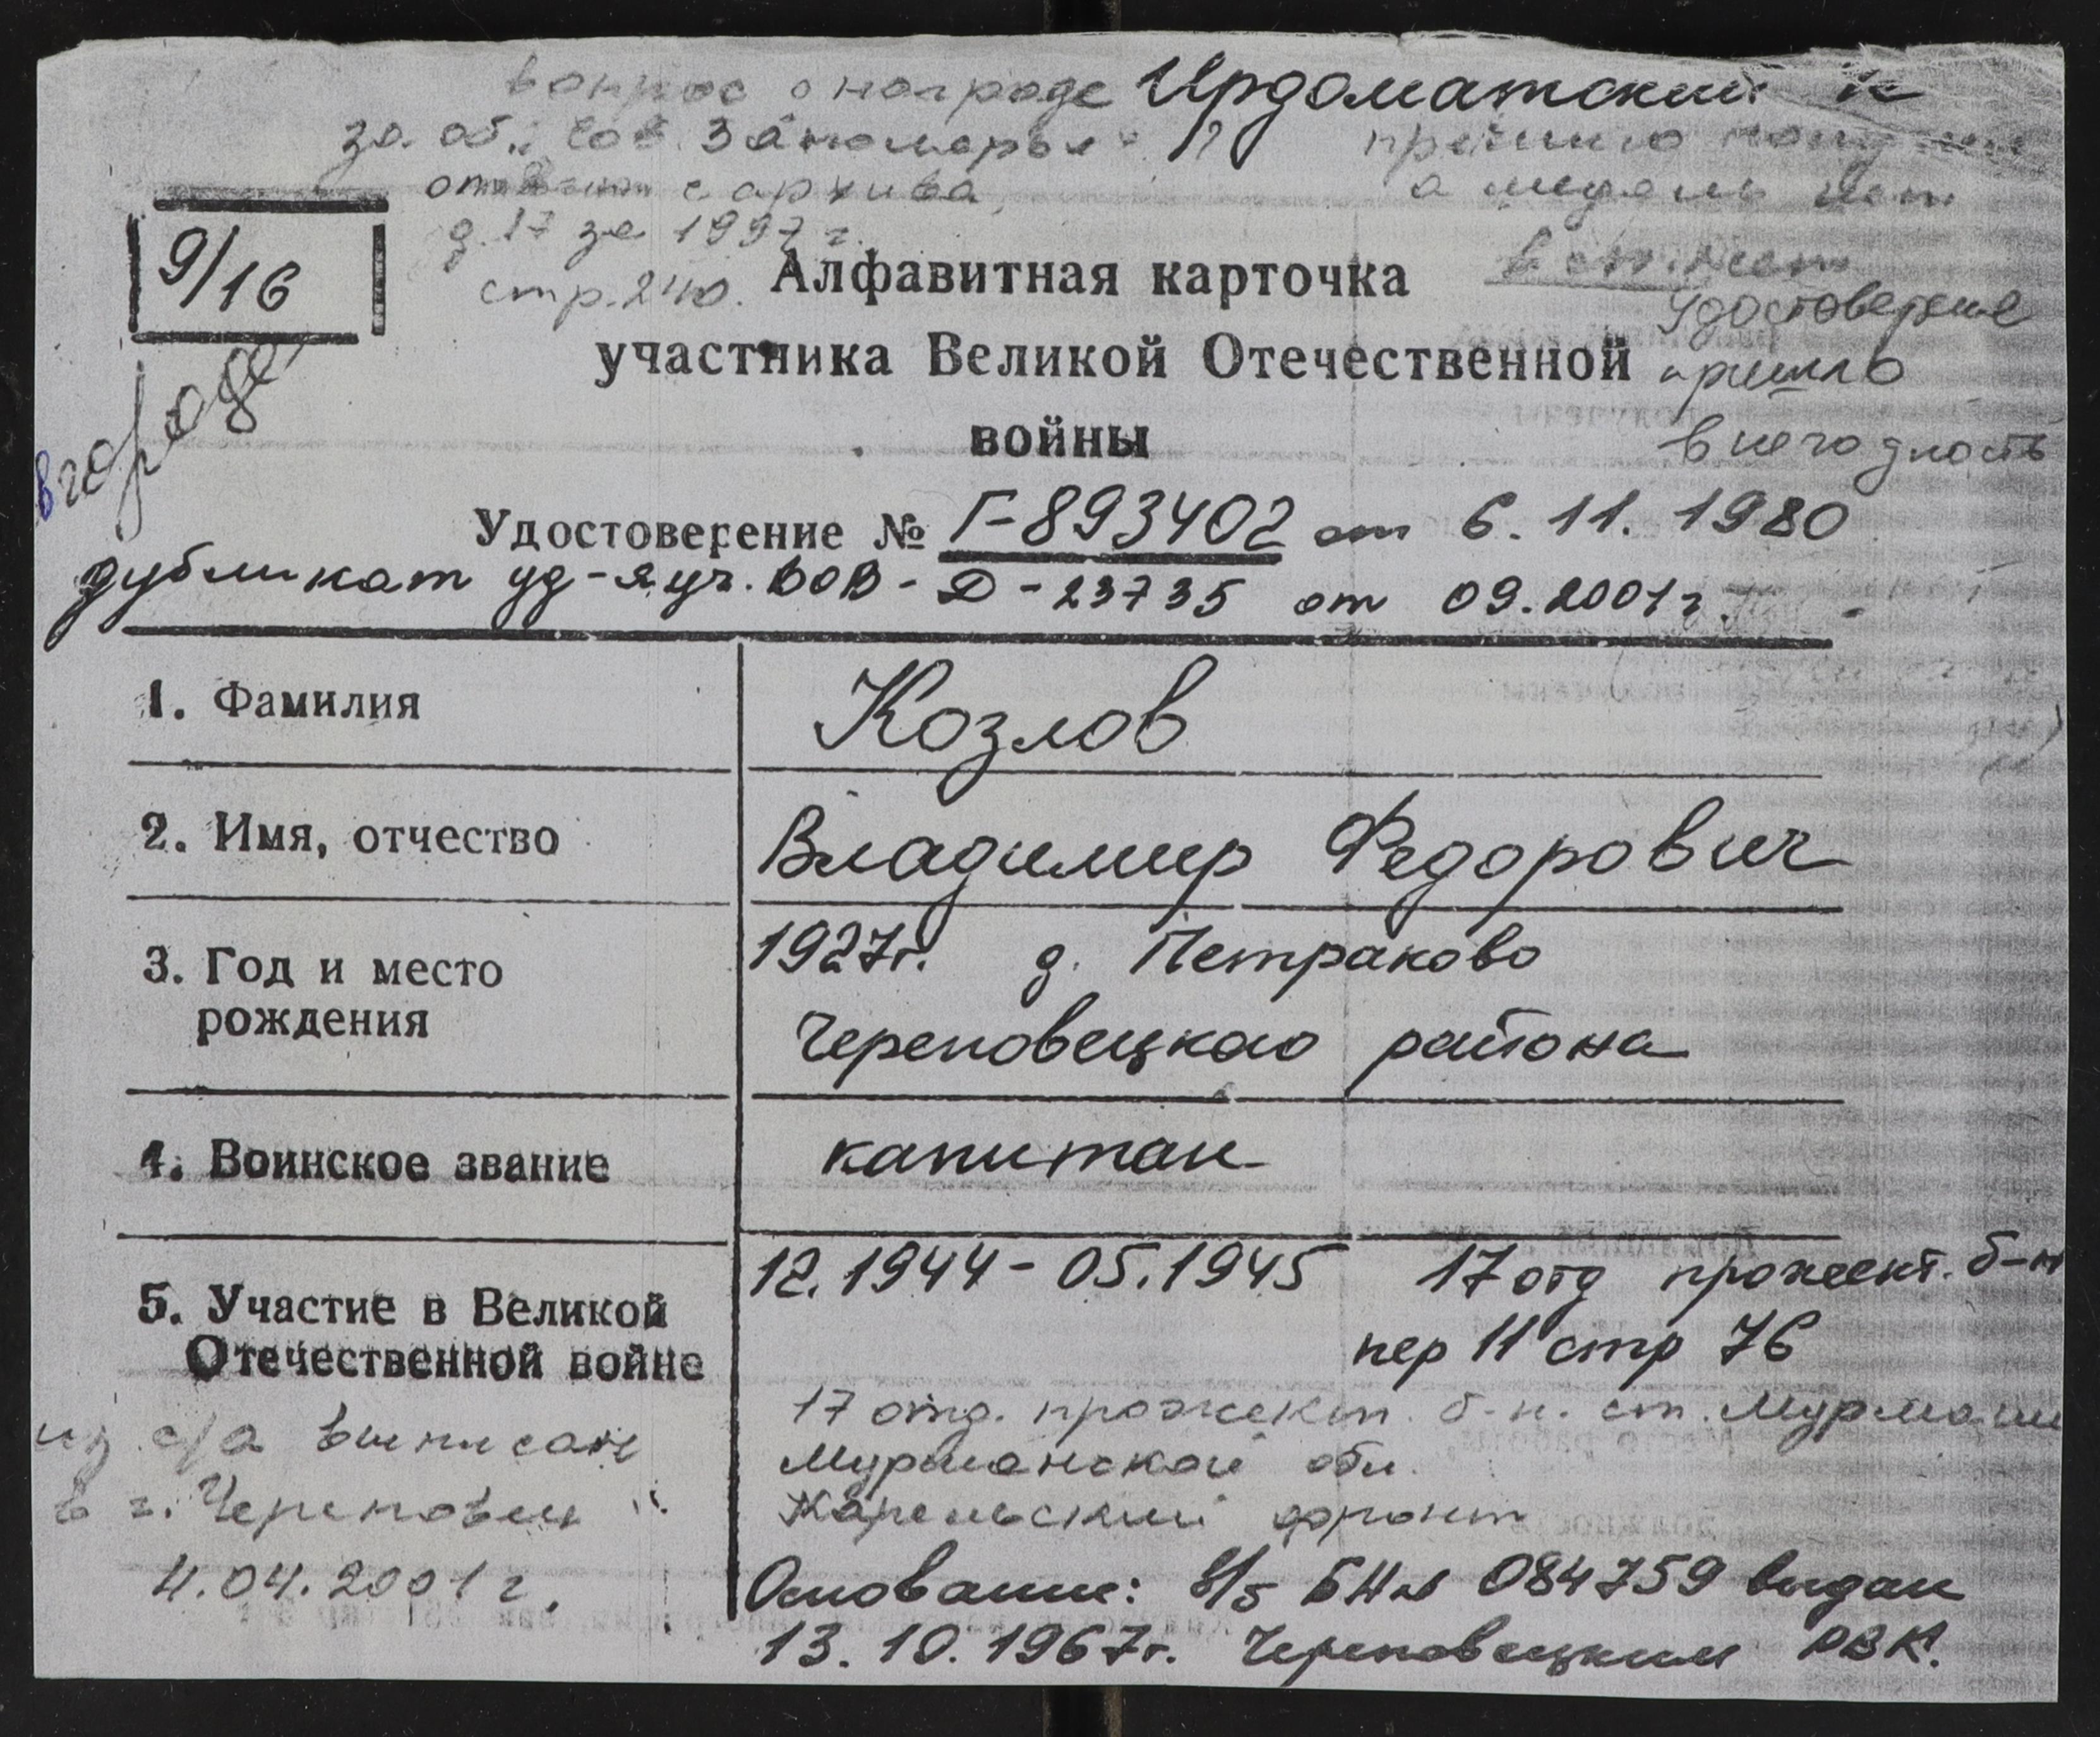 вопрос о награде Ирдоматский
за об. Сов. Заполярья
с архива
д. 17 за 1997 г.
стр. 240.
а медаль нет
9/16
в городе
Алфавитная карточка
участника Великой Отечественной
войны
Удостоверение
пришло
в негодность
Удостоверение № Г-893402 от 6.11.1980
дубликат уд-я уч. ВОВ - Д - 23735 от 09.2001 г
1. Фамилия
Козлов
2. Имя, отчество
Владимир Федорович
3. Год и место
рождения
1927г. д. Петраково
Череповецкого района
4. Воинское звание
капитан
5. Участие в Великой
Отечественной войне
12.1944 - 05.1945 17 отд прожект. б-н
пер 11 стр 76
17 отд. прожект. б-н. ст. Мурмаши
Мурманской обл.
Карельский фронт
из с/а выписан
в г. Череповец
4.04.2001 г.
Основание: в/б БН № 084759 выдан
13.10.1967г. Череповецким РВК.